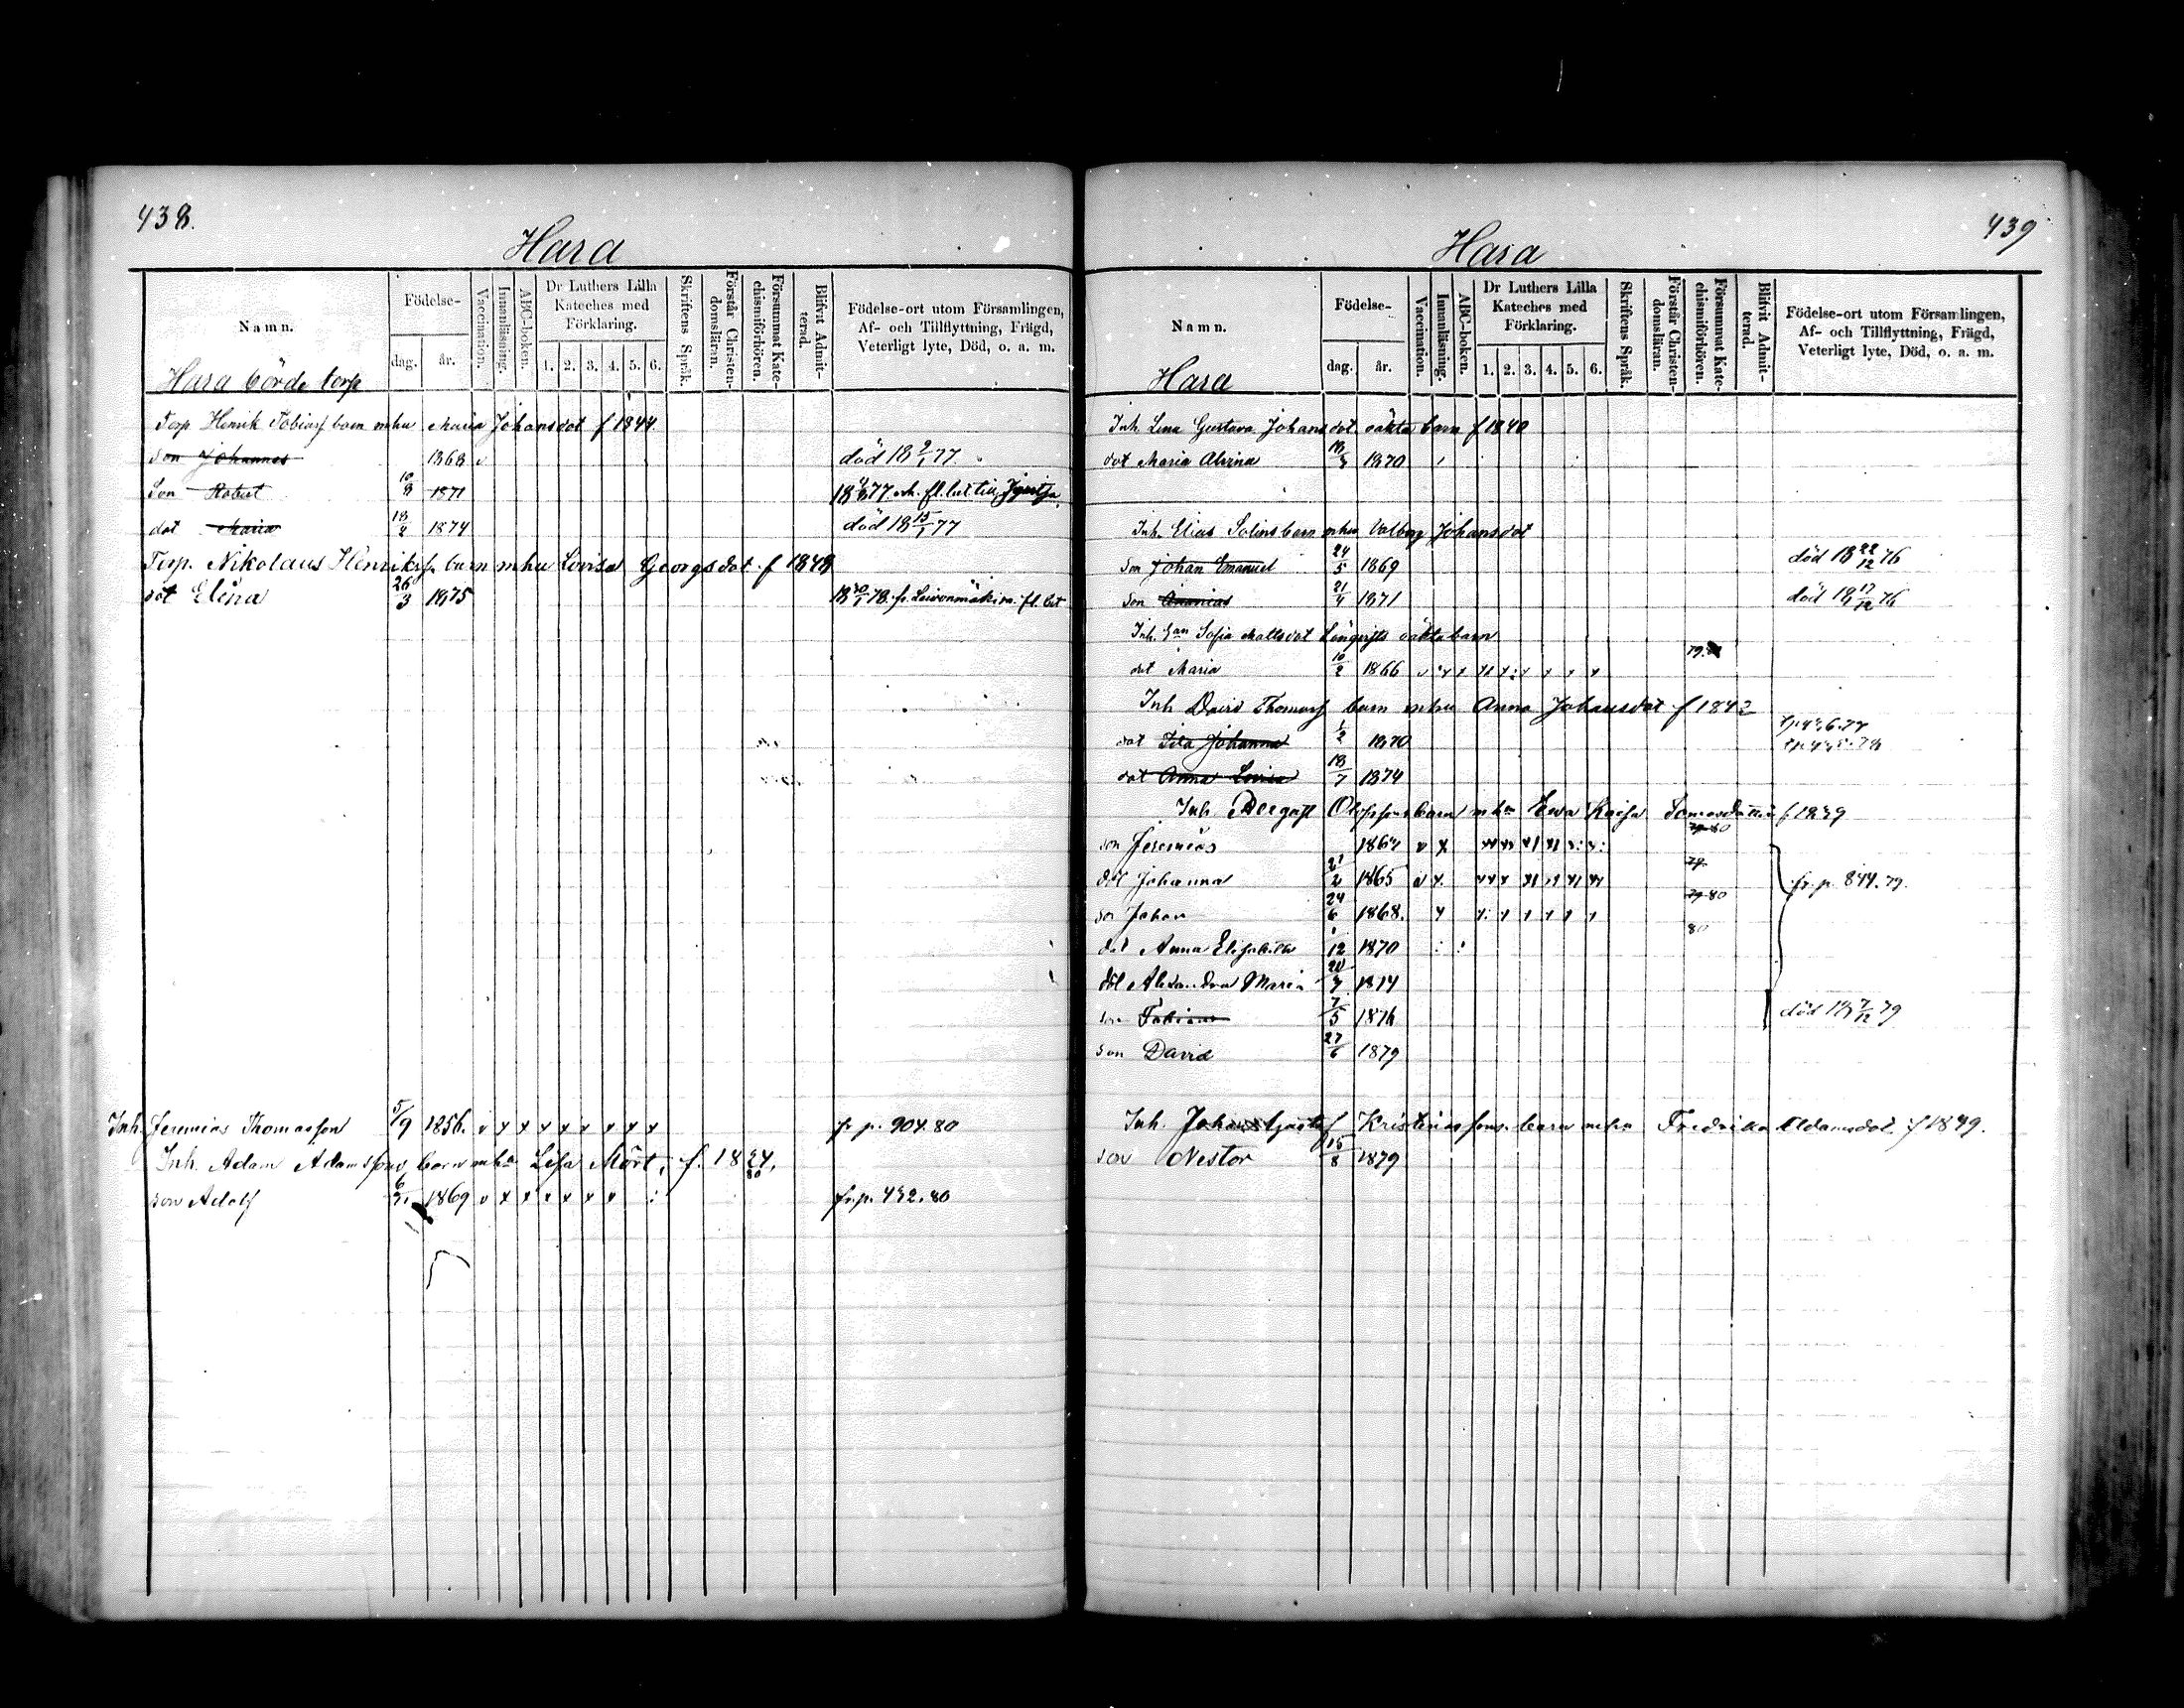 438.
Hara
Namn.
Födelse-
dag.
år.
Vaccination.
Innanläsning.
ABC-boken.
Dr Luthers Lilla
Kateches med
Förklaring.
1. 2. 3. 4. 5. 6.
Skriftens Språk.
Förstår Christen-
domsläran.
Försummat Kate-
chismiförhören.
Blifvit Admit-
terad.
Födelse-ort utom Församlingen,
Af- och Tillflyttning, Frägd,
Veterligt lyte, Död, o. a. m.
Hara börde torp
Torp Henrik Tobiasf barn mhu Maria Johansdot f 1844
son Johannes 1868 v död 18 2/1 77
Son Robert 10/8 1871 fl. bet till
dot Maria 18/4 1874 död 18 15/1 77
Torp. Nikolaus Henriksf. barn mhu Lovisa Georgsdot f 1848
dot Elina 26/3 1875 18 30/1 78 fr. Leivonmäki m. fl. bet
Inh. Jeremias Thomasson 5/9 1856. v x x x x x x x x fr p. 904.80
Inh. Adam Adamssons barn mha Lisa Mört, f. 1824,
80
son Adolf 1869 v x x x x x x : fr. p. 432.80
439
Hara
Namn.
Födelse-
dag.
år.
Vaccination.
Innanläsning.
ABC-boken.
Dr Luthers Lilla
Kateches med
Förklaring.
1. 2. 3. 4. 5. 6.
Skriftens Språk.
Förstår Christen-
domsläran.
Försummat Kate-
chismiförhören.
Blifvit Admit-
terad.
Födelse-ort utom Församlingen,
Af- och Tillflyttning, Frägd,
Veterligt lyte, Död, o. a. m.
Hara
Inh. Lena Gustava Johansdot oäkta barn f 1840
dot Maria Alvina 1870
Inh. Elias Solins barn mhu Valborg Johansdot
son Johan Emanuel 24/5 1869 död 18 22/12 76
son Ananias 21/4 1871 död 18 17/12 76
Inh. Sofia Mattsdot oäkta barn
79.
dot Maria 10/2 1866
Inh David Thomasf barn mhu Anna Johansdot f 1842
dot Ida Johanna 1/2 1870
dot Anna Lovisa 18/7 1874
Inh Olofssons barn mha Ewa Kaisa f 1839
79 80
son Jeremias 1862 v x
79.
dot Johanna 21/2 1865 fr. p. 844. 79.
79 80
son Johan 24/6 1868.
80
dot Anna Elisabeth 1/12 1870
dot Alexandra Maria 1874
son Tobias 7/5 1876 död 18 7/12 79
son David 27/6 1879
Inh. Johan Gustaf Kristianssons barn mha Fredrika Adamsdot. f 1849.
son Nestor 15/8 1879